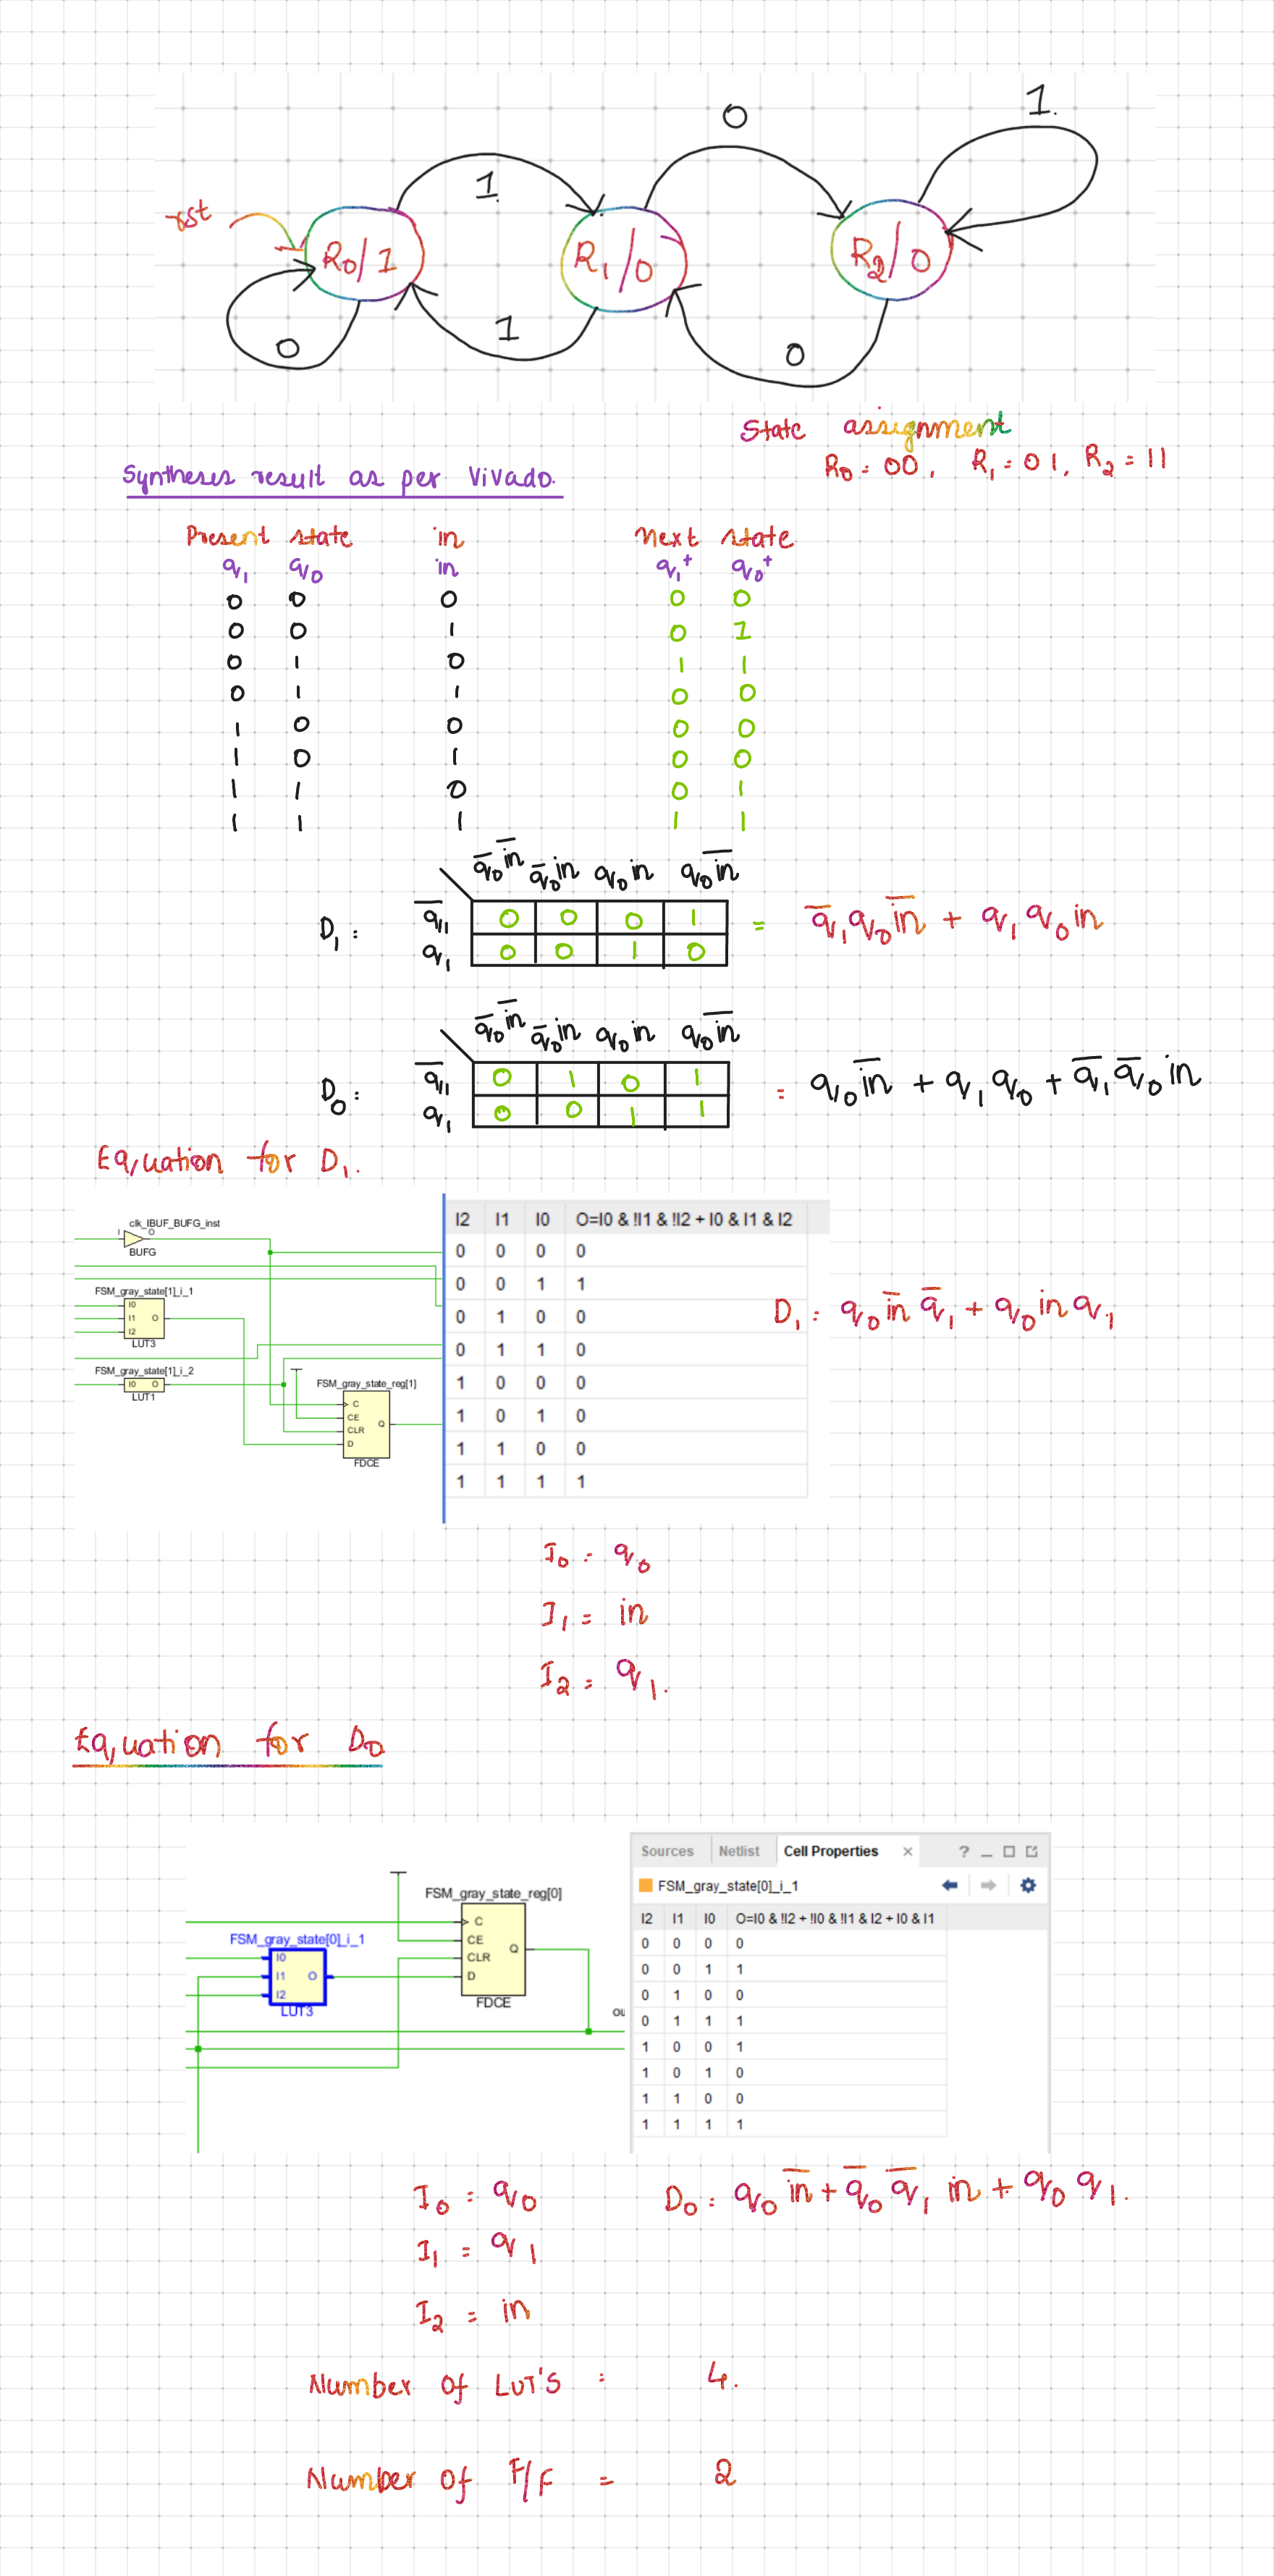 0
1.
1
rst
R0/1
R1/0
R2/0
0
1
0
State assignment
R0 = 00, R1 = 01, R2 = 11
Synthesis result as per Vivado.
Present state in next state
q1 q0 in q1+ q0+
0 0 0 0 0
0 0 1 0 1
0 1 0 1 1
0 1 1 0 0
1 0 0 0 0
1 0 1 0 0
1 1 0 0 1
1 1 1 1 1
q̅0 i̅n̅ q̅0 in q0 in q0 i̅n̅
D1 :
q̅1 0 0 0 1
q1 0 0 1 0
= q̅1 q0 i̅n̅ + q1 q0 in
q̅0 i̅n̅ q̅0 in q0 in q0 i̅n̅
D0 :
q̅1 0 1 0 1
q1 0 0 1 1
= q0 i̅n̅ + q1 q0 + q̅1 q̅0 in
Equation for D1.
clk_IBUF_BUFG_inst
I O
BUFG
FSM_gray_state[1]_i_1
I0
I1 O
I2
LUT3
FSM_gray_state[1]_i_2
I0 O
LUT1
FSM_gray_state_reg[1]
C
CE
Q
CLR
D
FDCE
I2 I1 I0 O=I0 & !I1 & !I2 + I0 & I1 & I2
0 0 0 0
0 0 1 1
0 1 0 0
0 1 1 0
1 0 0 0
1 0 1 0
1 1 0 0
1 1 1 1
D1 : q0 i̅n̅ q̅1 + q0 in q1
I0 = q0
I1 = in
I2 = q1.
Equation for D0
FSM_gray_state_reg[0]
C
CE
Q
CLR
D
FDCE
FSM_gray_state[0]_i_1
I0
I1 O
I2
LUT3
ou
Sources Netlist Cell Properties × ?
FSM_gray_state[0]_i_1
I2 I1 I0 O=I0 & !I2 + !I0 & !I1 & I2 + I0 & I1
0 0 0 0
0 0 1 1
0 1 0 0
0 1 1 1
1 0 0 1
1 0 1 0
1 1 0 0
1 1 1 1
I0 = q0
D0 : q0 i̅n̅ + q̅0 q̅1 in + q0 q1.
I1 = q1
I2 = in
Number of LUT'S : 4.
Number of F/F = 2